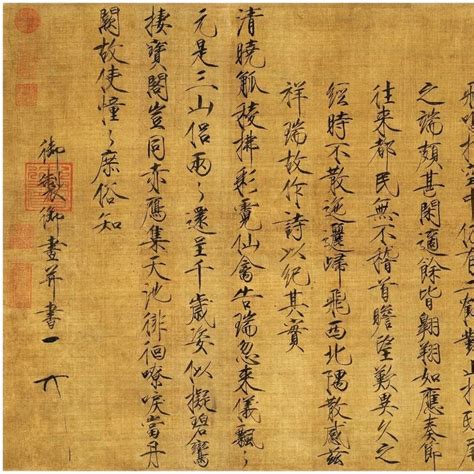 之端頗甚閑適餘皆翱翔如應奏節
往來都民無不稽首瞻望歎異久之
經時不散迤邐歸飛西北隅散感茲
祥瑞故作詩以紀其實
清曉觚稜拂彩霓仙禽告瑞忽來儀飄〻
元是三山侶兩〻還呈千歲姿似擬碧鸞
棲寶閣豈同赤鴈集天池徘徊嘹唳當丹
闕故使憧〻庶俗知
御製御畫并書